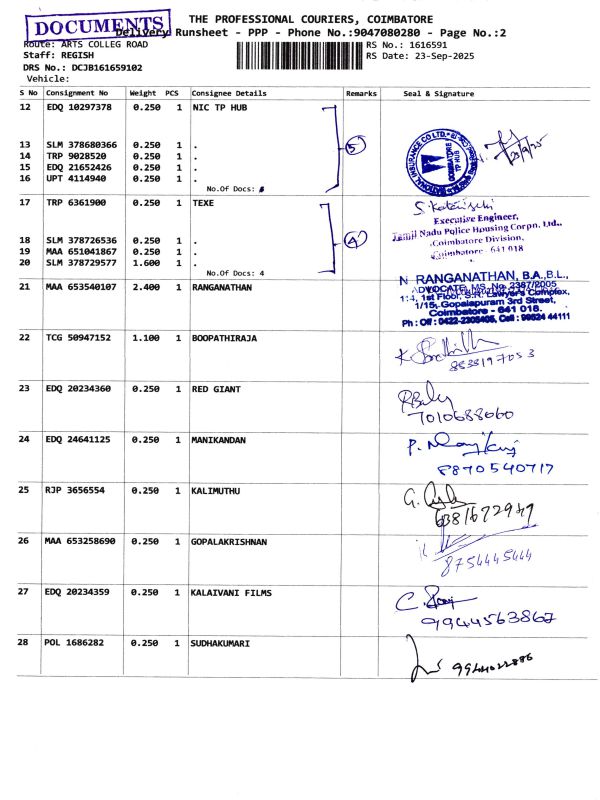 DOCUMENTS
THE PROFESSIONAL COURIERS, COIMBATORE
Delivery Runsheet - PPP - Phone No.:9047080280 - Page No.:2
Route: ARTS COLLEG ROAD
RS No.: 1616591
Staff: REGISH
RS Date: 23-Sep-2025
DRS No.: DCJB161659102
Vehicle:
S No Consignment No Weight PCS Consignee Details Remarks Seal & Signature
12 EDQ 10297378 0.250 1 NIC TP HUB
13 SLM 378680366 0.250 1 .
14 TRP 9028520 0.250 1 .
15 EDQ 21652426 0.250 1 .
16 UPT 4114940 0.250 1 .
No.Of Docs:
5
COIMBATORE TP HUB
23/9/25
17 TRP 6361900 0.250 1 TEXE
18 SLM 378726536 0.250 1 .
19 MAA 651041867 0.250 1 .
20 SLM 378729577 1.600 1 .
No.Of Docs: 4
4
Executive Engineer,
Tamil Nadu Police Housing Corpn. Ltd.,
Coimbatore Division,
Coimbatore - 641 018
21 MAA 653540107 2.400 1 RANGANATHAN
N RANGANATHAN, B.A.,B.L.,
ADVOCATE, MS. No. 2387/2005
1:4, 1st Floor, S.R. Lawyer's Complex,
1/15, Gopalapuram 3rd Street,
Coimbatore - 641 018.
Ph : Off : 0422-2305405, Cell : 99524 44111
22 TCG 50947152 1.100 1 BOOPATHIRAJA
8838197053
23 EDQ 20234360 0.250 1 RED GIANT
7010688060
24 EDQ 24641125 0.250 1 MANIKANDAN
8870540717
25 RJP 3656554 0.250 1 KALIMUTHU
6381672949
26 MAA 653258690 0.250 1 GOPALAKRISHNAN
8754445444
27 EDQ 20234359 0.250 1 KALAIVANI FILMS
9944563867
28 POL 1686282 0.250 1 SUDHAKUMARI
9944022886